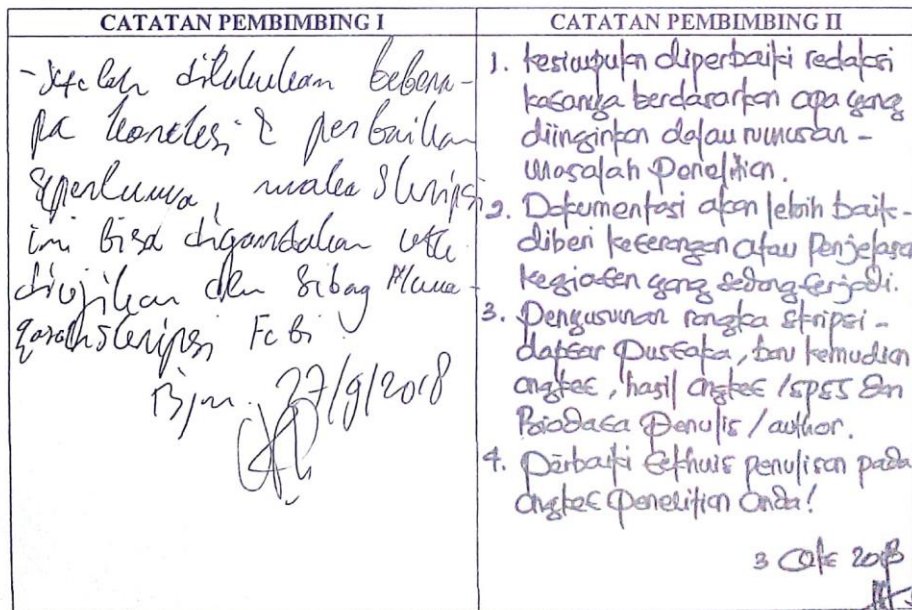 CATATAN PEMBIMBING I
- Setelah dilakukan bebera-
pa koreksi & perbaikan
seperlunya, maka skripsi
ini bisa digandakan utk
diujikan dlm sidag Muna-
qasah skripsi Febi.
Bjm. 27/9/2018
CATATAN PEMBIMBING II
1. kesimpulan diperbaiki redaksi
katanya berdasarkan apa yang
diinginkan dalam rumusan -
masalah Penelitian.
2. Dokumentasi akan lebih baik -
diberi keterangan atau Penjelasan
kegiatan yang sedang terjadi.
3. Pengusunan rangka skripsi -
daptar Pustaka, baru kemudian
angket, hasil angket / SPSS dan
Biodata Penulis / author.
4. Perbaiki tekhnis penulisan pada
angket Penelitian Anda!
3 Okt 2018